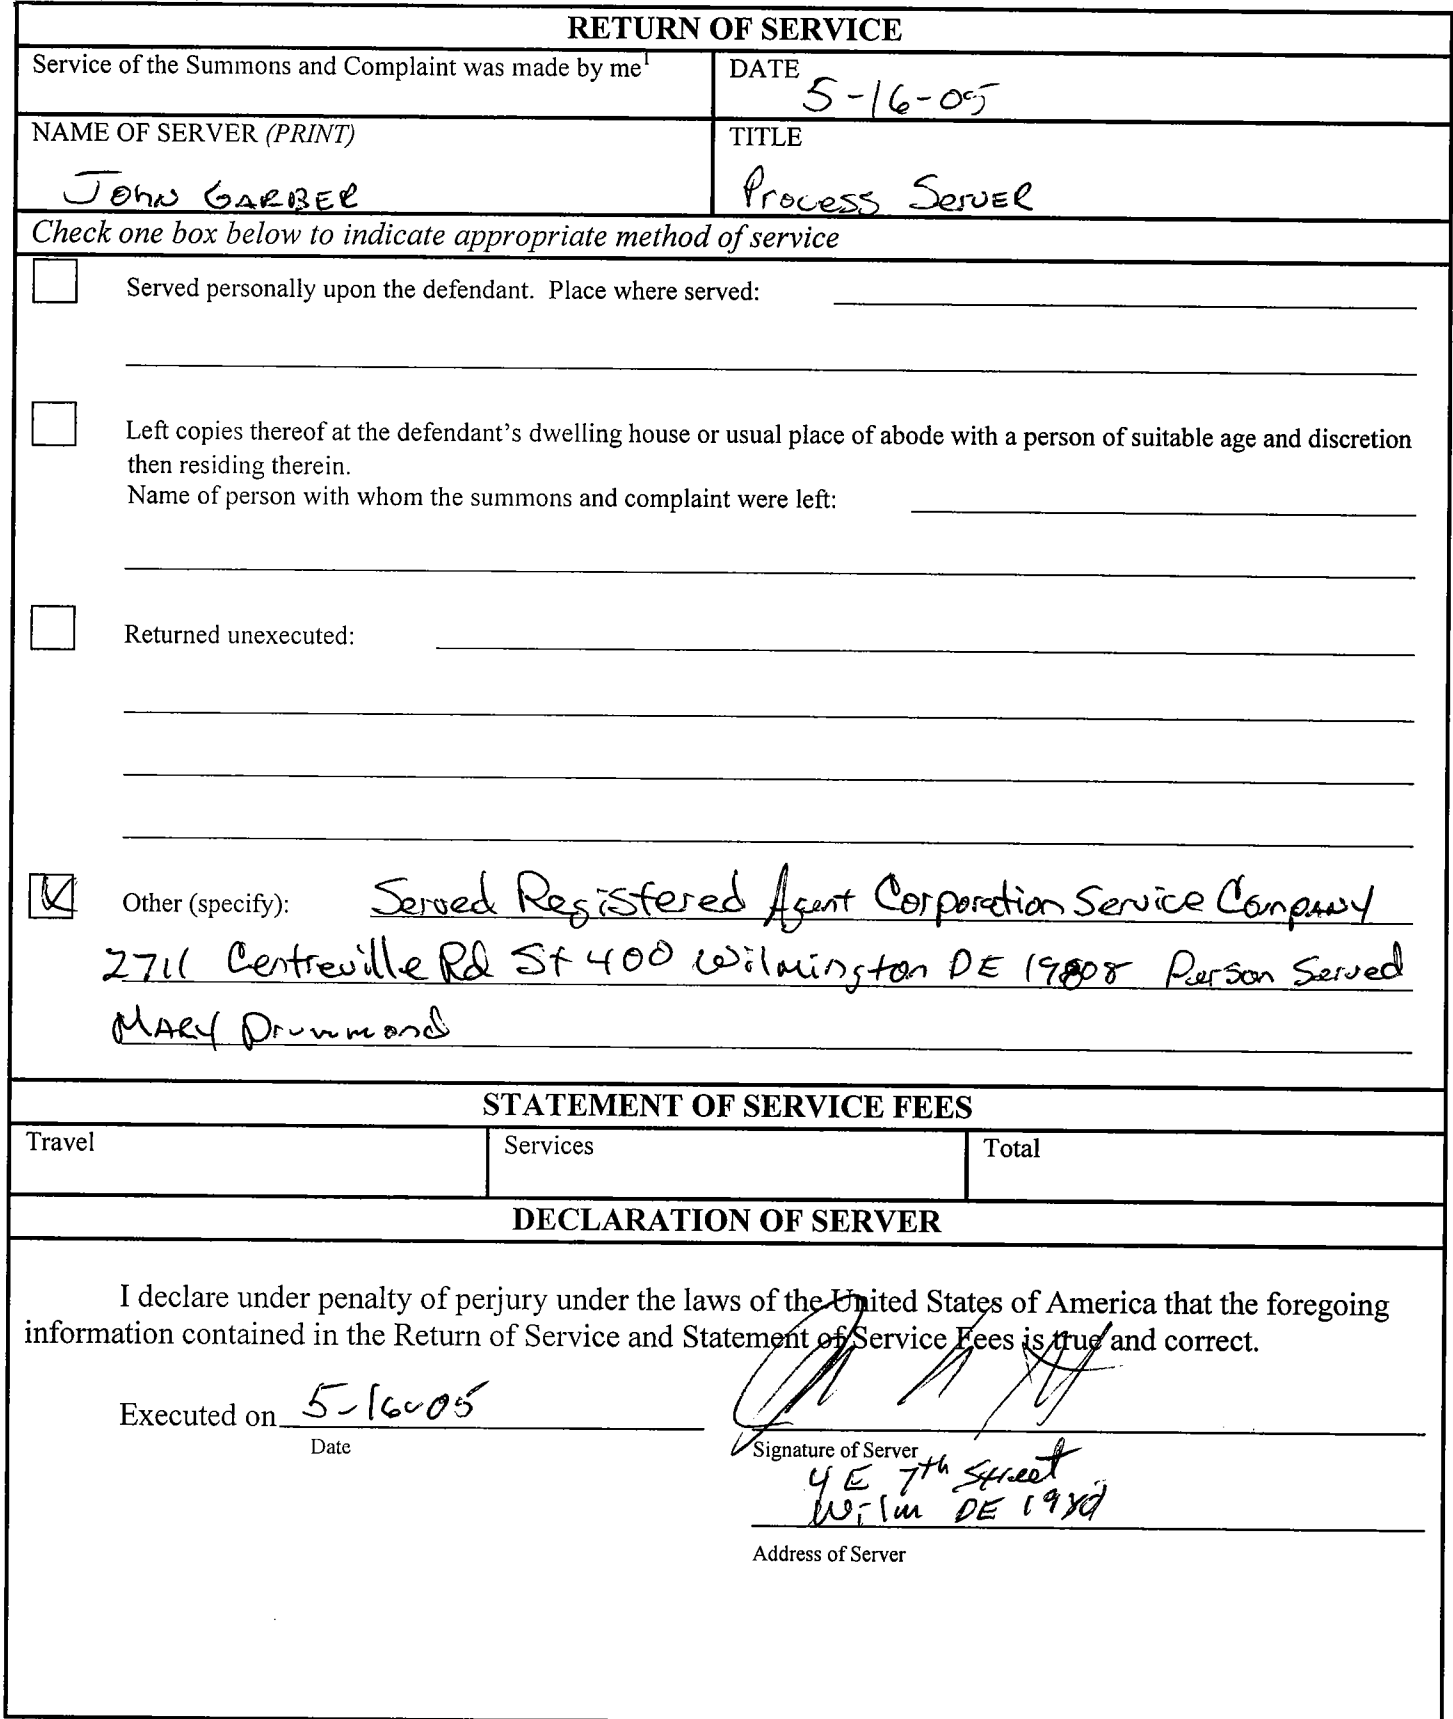 RETURN OF SERVICE
Service of the Summons and Complaint was made by me¹
DATE
5-16-05
NAME OF SERVER (PRINT)
John GARBER
TITLE
Process Server
Check one box below to indicate appropriate method of service
Served personally upon the defendant. Place where served:
Left copies thereof at the defendant's dwelling house or usual place of abode with a person of suitable age and discretion
then residing therein.
Name of person with whom the summons and complaint were left:
Returned unexecuted:
Other (specify): Served Registered Agent Corporation Service Company
2711 Centreville Rd St 400 Wilmington DE 19808 Person Served
MARY Drummond
STATEMENT OF SERVICE FEES
Travel
Services
Total
DECLARATION OF SERVER
I declare under penalty of perjury under the laws of the United States of America that the foregoing
information contained in the Return of Service and Statement of Service Fees is true and correct.
Executed on 5-16-05
Date
Signature of Server
4 E 7th Street
Wilm DE
Address of Server